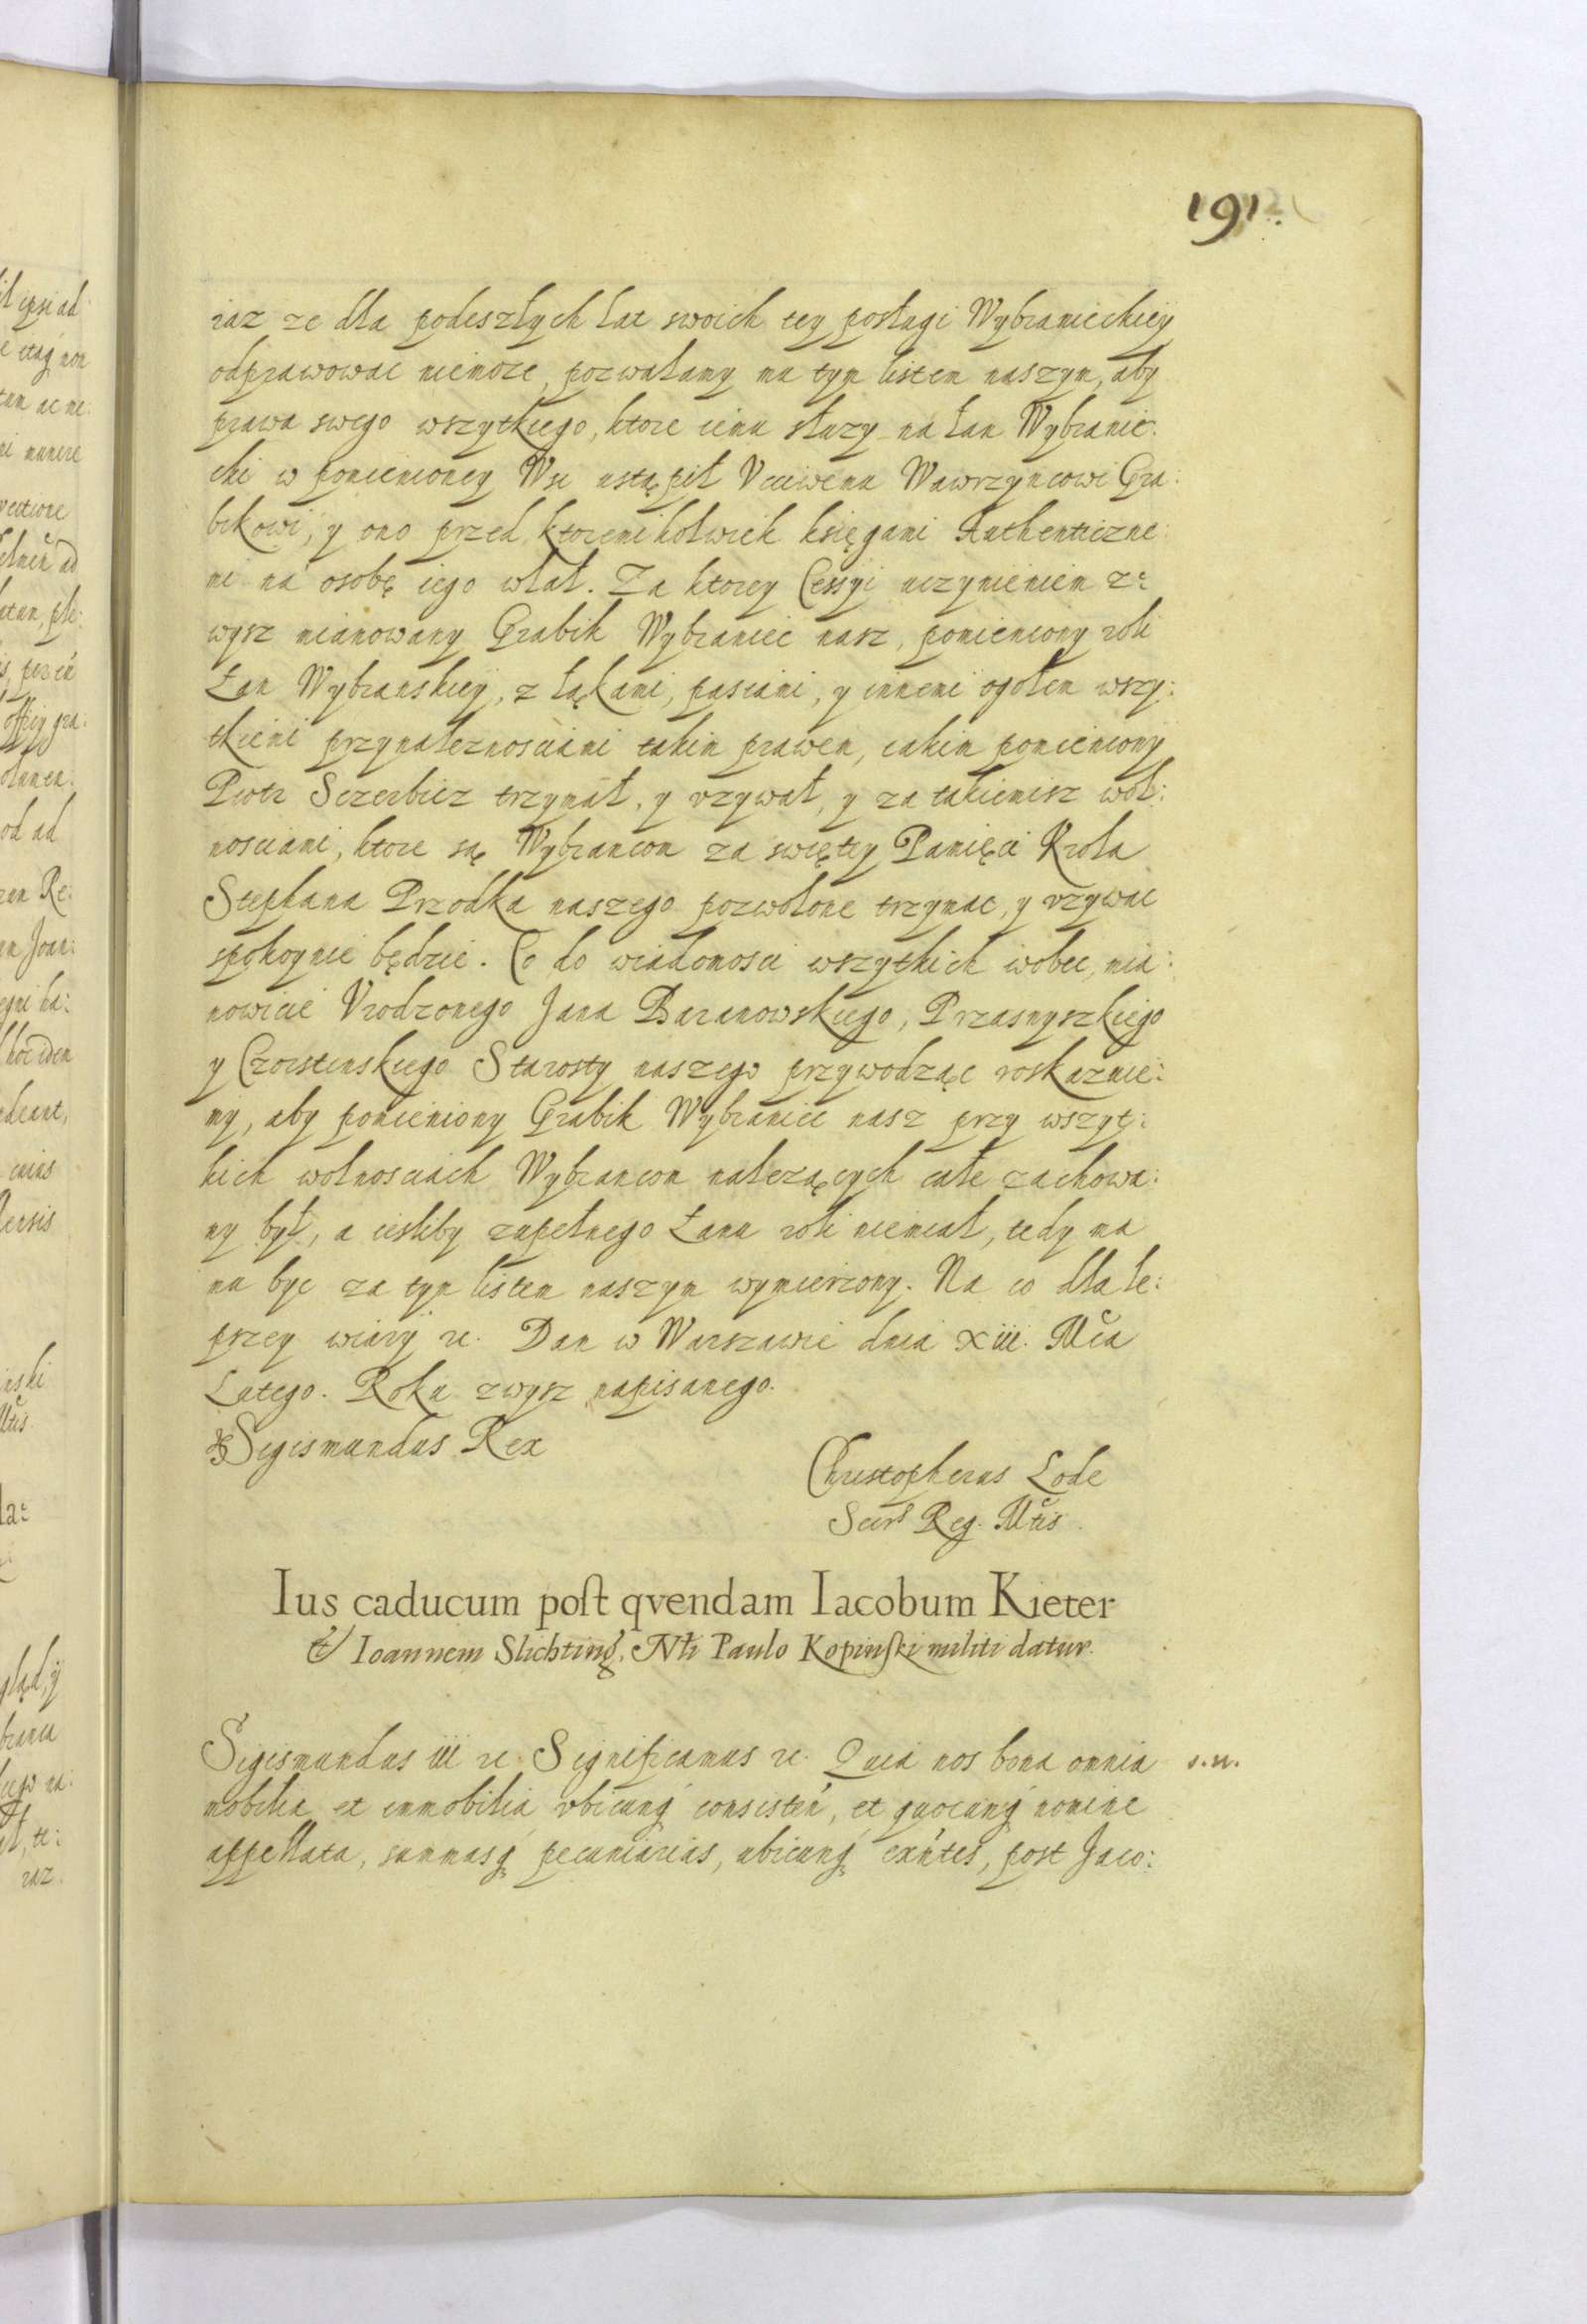 191.
raz ze dla podeszłych lat swoich tey posługi Wybranieckiey
odprawowac niemoze, pozwalamy mu tym listem naszym, aby
prawa swego wszytkiego, ktore iemu słuzy na łan Wybranie:
cki w pomienioney Wsi ustąpił Vcciwemu Wawrzyncowi Gra:
bikowi, y ono przed ktoremikolwiek księgami Authenticzne:
mi na osobę iego wlał. Za ktorey Cessyi uczynieniem z:
wysz mianowany Grabik Wybraniec nasz, pomieniony roli
Łan Wybranskiey, z łąkami, pasiami, y innemi ogołem wszy:
tkiemi przynaleznosciami takim prawem, iakim pomieniony
Piotr Sczerbicz trzymał, y vzywał, y za takiemisz wol:
nosciami, ktore są Wybrancom za swiętey Pamięci Krola
Stephana Przodka naszego pozwolone trzymac, y vzywac
spokoynie będzie. Co do wiadomosci wszytkich wobec, mia:
nowicie Vrodzonego Jana Baranowskiego, Przasnyszkiego
y Czorstinskiego Starosty naszego przywodząc roskazuie:
my, aby pomieniony Grabik Wybraniec nasz przy wszyt:
kich wolnosciach Wybrancom nalezących cale zachowa:
ny był, a iesliby zupełnego Łanu roli niemiał, tedy mu
ma byc za tym listem naszym wymierzony. Na co dla le:
pszey wiary rc. Dan w Warszawie dnia XIII. Mca
Lutego. Roku zwysz napisanego.
Sigismundus Rex
Christopherus Lode
Secrs Reg. Mtis
Ius caducum post qvendam Iacobum Kieter
& Ioannem Slichting, Nli Paulo Kopinski militi datur.
Sigismundus III rc. Significamus rc. Quia nos bona omnia s.n.
mobilia et immobilia, vbicunq consisten, et quocunq nomine
appellata, summasq pecuniarias, ubicunq exntes, post Jaco: